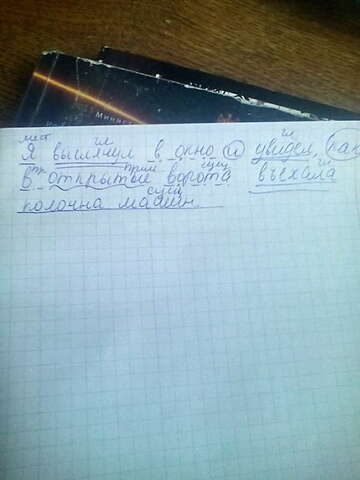 Минист
мест гл гл
Я выглянул в окно и увидел, как
пр прил сущ гл
в открытые ворота въехала
сущ
колочна машин.